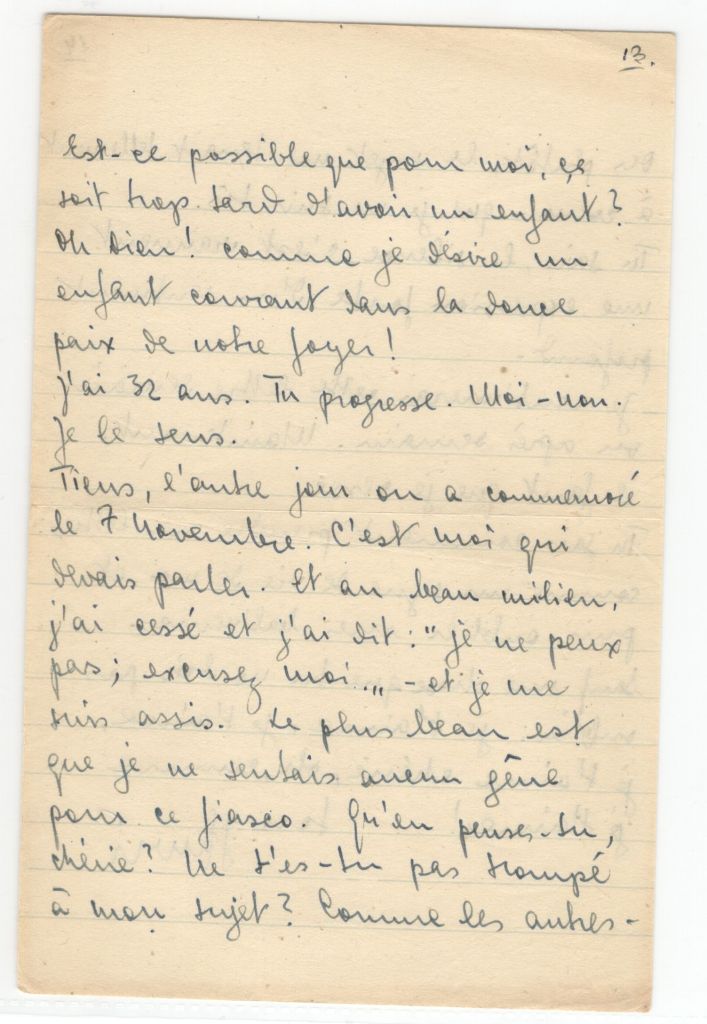 13.
Est-ce possible que pour moi, ça
soit trop tard d'avoir un enfant?
Oh Dieu! Comme je désire un
enfant courant dans la douce
paix de notre foyer!
J'ai 32 ans. Tu progresse. Moi-non.
Je le sens.
Tiens, l'autre jour on a commemoré
le 7 Novembre. C'est moi qui
devais parler. Et au beau milieu,
j'ai cessé et j'ai dit: "je ne peux
pas; excusez moi..„ - et je me
suis assis. Le plus beau est
que je ne sentais aucun gêne
pour ce fiasco. Qu'en penses-tu,
chérie? Ne t'es-tu pas trompé
à mon sujet? Comme les autres-